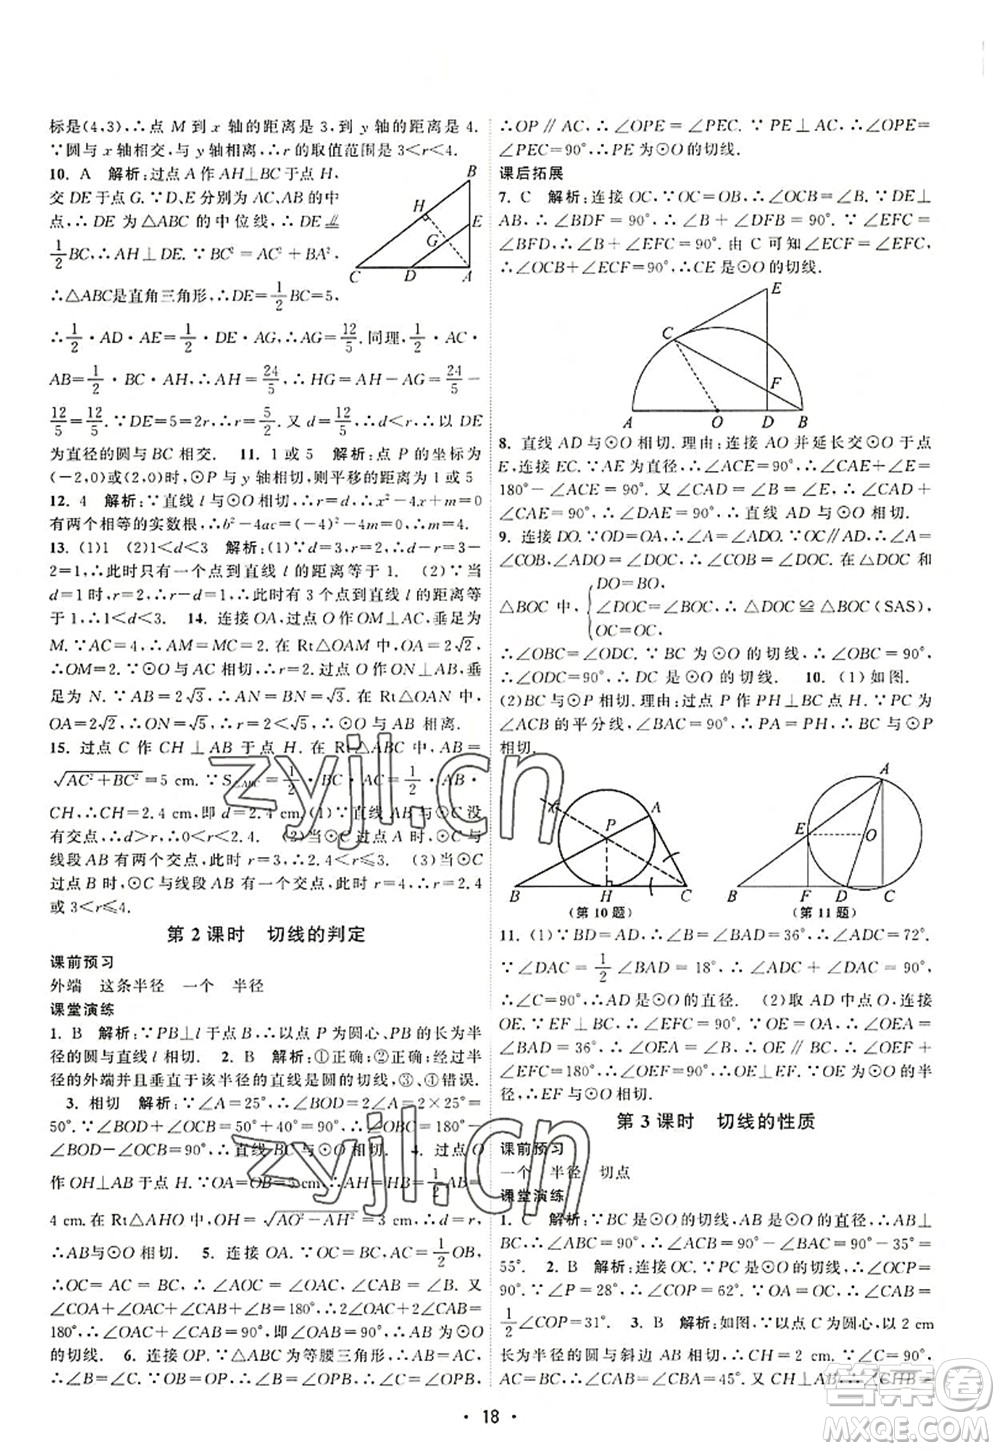 标是(4,3),∴点 M 到 x 轴的距离是 3,到 y 轴的距离是 4.
∵圆与 x 轴相交,与 y 轴相离,∴r 的取值范围是 3<r<4.
10. A 解析:过点 A 作 AH⊥BC 于点 H,
交 DE 于点 G.∵D、E 分别为 AC、AB 的中
点,∴DE 为 △ABC 的中位线,∴DE ∥
1/2 BC.∴AH⊥DE.∵BC²=AC²+BA²,
∴△ABC是直角三角形,∴DE=1/2BC=5,
∴1/2·AD·AE=1/2·DE·AG,∴AG=12/5.同理,1/2·AC·
AB=1/2·BC·AH,∴AH=24/5,∴HG=AH-AG=24/5-
12/5=12/5.∵DE=5=2r,∴r=5/2.又∵d=12/5,∴d<r,∴以 DE
为直径的圆与 BC 相交. 11. 1 或 5 解析:点 P 的坐标为
(-2,0)或(2,0)时,⊙P 与 y 轴相切,则平移的距离是 1 或 5
12. 4 解析:∵直线 l 与⊙O 相切,∴r=d,∴x²-4x+m=0
有两个相等的实数根,∴b²-4ac=(-4)²-4m=0.∴m=4.
13. (1)1 (2)1<d<3 解析:(1)∵d=3,r=2,∴d-r=1,
∴此时只有一个点到直线 l 的距离等于 1. (2)∵当 d=3 或
d=1 时,m=1或3,∴1<d<3,∴此时有 3 个点到直线 l 的距离等
于 1,∴1<d<3. 14. 连接 OA,过点 O 作 OM⊥AC,垂足为
M.∵AC=4,∴AM=MC=2.在 Rt△OAM 中,OA=2√2,
∴OM=2.∵⊙O 与 AC 相切,∴r=2.过点 O 作 ON⊥AB,
垂足为 N.∵AB=2√3,∴AN=√3.在 Rt△OAN 中,
OA=2√2,∴ON=√5.∵√5>2,∴⊙O 与 AB 相离.
15. 过点 C 作 CH⊥AB 于点 H. 在 Rt△ABC 中,AB=
√AC²+BC²=5 cm.∵S△ABC=1/2·BC·AC=1/2·AB·
CH,∴CH=2.4 cm,即 d=2.4 cm. (1)∵直线 AB 与⊙C 没
有交点,∴d>r,∴0<r<2.4. (2)当⊙C 过点 A 时,⊙C 与
线段 AB 有两个交点,此时 r=3,∴2.4<r≤3. (3)当⊙C
过点 B 时,⊙C 与线段 AB 有一个交点,此时 r=4.∴r=2.4
或 3<r≤4.
第 2 课时 切线的判定
课前预习
外端 这条半径 一个 半径
课堂演练
1. B 解析:∵PB⊥l 于点 B,∴以点 P 为圆心,PB 的长为半
径的圆与直线 l 相切. 2. B 解析:①正确;②正确;经过半
径的外端并且垂直于该半径的直线是圆的切线,③、④错误.
3. 相切 解析:∵∠A=25°,∴∠BOD=2∠A=2×25°=
50°.∵∠B=40°,∴∠BOD+∠B=50°+40°=90°,∴∠ODB=180°-
∠BOD-∠B=90°,∴直线 BD 与⊙O 相切. 4. 过点 O
作 OH⊥AB,垂足为点 H.∵OA=OB=5 cm,∴AH=1/2AB=
4 cm.在 Rt△AHO 中,OH=√AO²-AH²=3 cm.∵d=r,
∴AB与⊙O 相切. 5. 连接 OA,∵OC=BC,∴OC=1/2OB,
∴OC=AC=BC.∴∠COA=∠OAC,∠B=∠CAB.又
∵∠COA+∠OAC+∠CAB+∠B=180°,∴2∠OAC+2∠CAB=
180°,∴∠OAC+∠CAB=90°,即∠OAB=90°,∴AB 是⊙O
的切线. 6. 连接 OP.∵△ABC 为等腰三角形,∴∠ABC=
∠ACB.又∵∠ABC=∠OPB,∴∠ACB=∠OPB,
∴OP∥AC,∴∠OPE=∠PEC.∵PE⊥AC,∴∠OPE=
∠PEC=90°,∴PE 为⊙O 的切线.
课后拓展
7. C 解析:连接 OC,∵OC=OB,∴∠OCB=∠B.∵DE⊥
AB,∴∠BDF=90°,∴∠B+∠DFB=90°.∵∠EFC=
∠BFD,∴∠B+∠EFC=90°.由 C 可知∠ECF=∠EFC,
∴∠OCB+∠ECF=90°,∴CE 是⊙O 的切线.
8. 直线 AD 与⊙O 相切.理由:连接 AO 并延长交⊙O 于点
E,连接 EC.∵AE 为直径,∴∠ECA=90°,∴∠E+∠EAC=
180°-∠ECA=90°.又∵∠CAD=∠B,∠B=∠E,∴∠CAD+
∠EAC=∠E+∠EAC=90°,∴直线 AD 与⊙O 相切.
9. 连接 DO.∵OD=OA,∴∠A=∠ADO.∵OC∥AD,∴∠A=
∠COB,∠ADO=∠DOC,∴∠DOC=∠COB. 在△DOC 和
△BOC 中,{DO=BO,
∠DOC=∠BOC,∴△DOC≌△BOC(SAS),
OC=OC,
∴∠OBC=∠ODC.∵BC 是⊙O 的切线,∴∠OBC=90°,
∴∠ODC=90°,∴DC 是⊙O 的切线. 10. (1)如图.
(2)BC 与⊙P 相切.理由:过点 P 作 PH⊥BC.∵PC 为
∠ACB 的平分线,∠BAC=90°,∴PA=PH,∴BC 与⊙P
相切.
(第 10 题) (第 11 题)
11. (1)∵BD=AD,∴∠B=∠BAD=36°,∴∠ADC=72°.
∵∠DAC=1/2∠BAD=18°,∴∠ADC+∠DAC=90°,
∴∠C=90°,∴AD 是⊙O 的直径. (2)取 AD 中点 O,连接
OE.∵EF∥AC,∴∠EFD=∠C=90°.∵OA=OE,∴∠OEA=
∠BAD=36°,∴∠OEA=∠B,∴OE∥BC,∴∠OEF=180°-
∠EFC=90°,∴OE⊥EF.∵OE 为⊙O 的半
径,∴EF 是⊙O 的切线.
第 3 课时 切线的性质
课前预习
一个 半径 切点
课堂演练
1. C 解析:∵BC 是⊙O 的切线,AB 是⊙O 的直径,∴AB⊥
BC,∴∠ABC=90°.∵∠BAC=35°,∴∠ACB=90°-35°=
55°. 2. B 解析:连接 OC.∵PC 是⊙O 的切线,∴∠OCP=
90°.∵∠P=28°,∴∠COP=62°.∵OA=OC,∴∠CAB=
1/2∠COP=31°. 3. B 解析:如图,∵以点 C 为圆心,以 2 cm
长为半径的圆与斜边 AB 相切,∴CH=2 cm,∠CHB=
90°.∵AC=BC,∴∠CAB=∠CBA=45°.∴∠ACH=∠CHB-
· 18 ·
zyjl.cn
zyjl.cn
答案圈
MXQE.COM